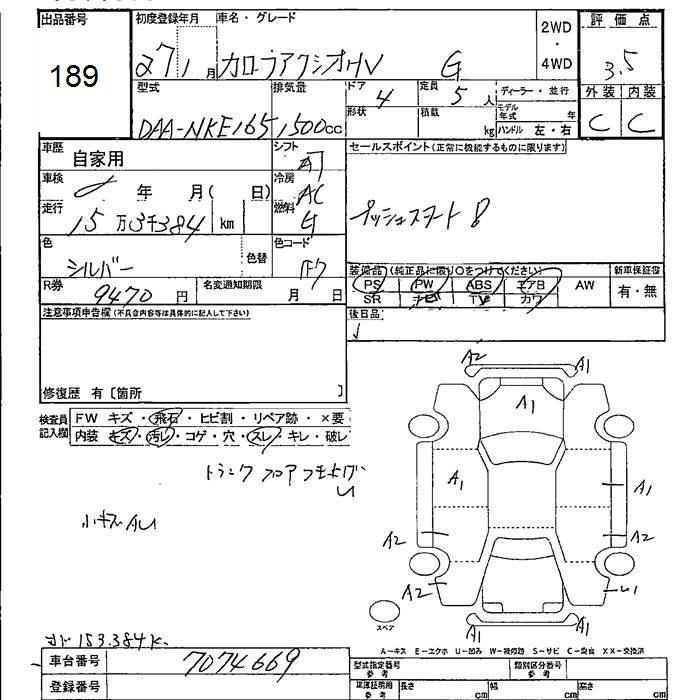 出品番号 初度登録年月 車名・グレード 2WD・4WD 評価点
189 27 1月 カローラアクシオHV G 3.5
型式 排気量 ドア 4 定員 5人 ディーラー・並行 外装 内装
DAA-NKE165 1,500cc 形状 積載 kg モデル年式 年 ハンドル 左・右 C C
車歴 自家用 シフト AT セールスポイント(正常に機能するものに限ります)
車検 年 月( 日) 冷房 AC
走行 15万3千384 km 燃料 G プッシュスタート
色 シルバー 色替 色コード 1F7
装備品(純正品に限り○をつけてください) 新車保証書
PS PW ABS エアB AW 有・無
SR ナビ TV カワ
R券 9470円 名変通知期限 月 日
注意事項申告欄(不具合内容等は具体的に記入して下さい) 後日品
修復歴 有〔箇所 〕
検査員記入欄 FW キズ・飛石・ヒビ割・リペア跡・×要
内装 キズ・汚レ・コゲ・穴・スレ・キレ・破レ
トランクフロア
小キズAU
A2 A1
A1
A1 A1
A2 A2
A2 U1
A1 A1
スペア
A-キズ E-エクボ U-凹み W-補修跡 S-サビ C-腐食 XX-交換済
153.384K
車台番号 7074669 型式指定番号 参考 類別区分番号 参考
登録番号 車庫証明用 参考 長さ cm 幅 cm 高さ cm